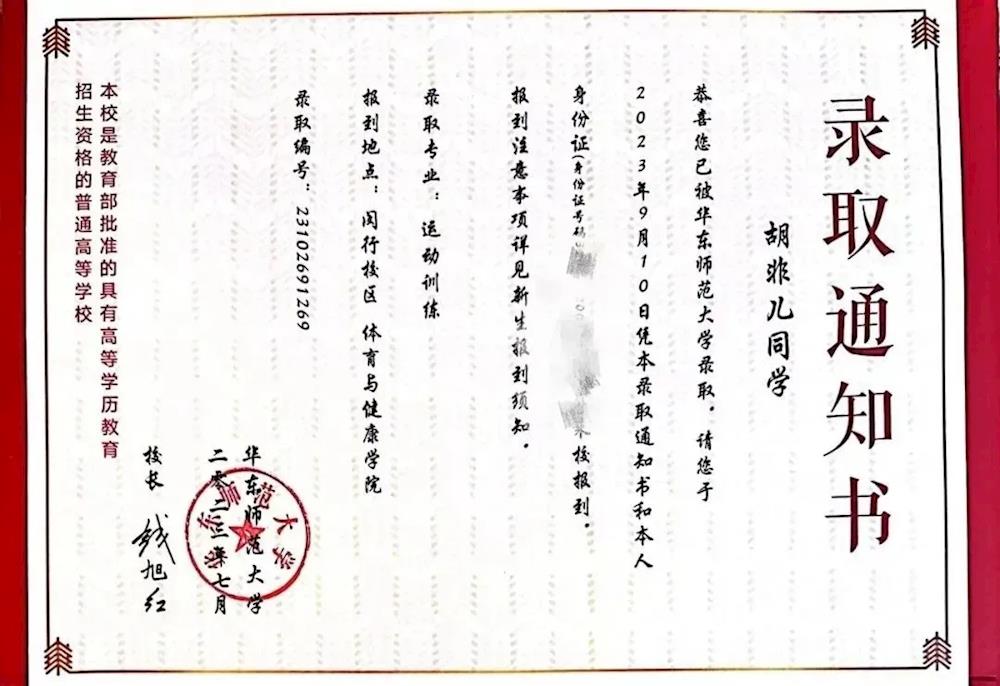 录取通知书
胡非儿同学
恭喜您已被华东师范大学录取。请您于
2023年9月10日凭本录取通知书和本人
身份证(身份证号码 来校报到。
报到注意事项详见新生报到须知。
录取专业：运动训练
报到地点：闵行校区 体育与健康学院
录取编号：23102691269
华东师范大学
二零二三年七月
校长 钱旭红
本校是教育部批准的具有高等学历教育
招生资格的普通高等学校